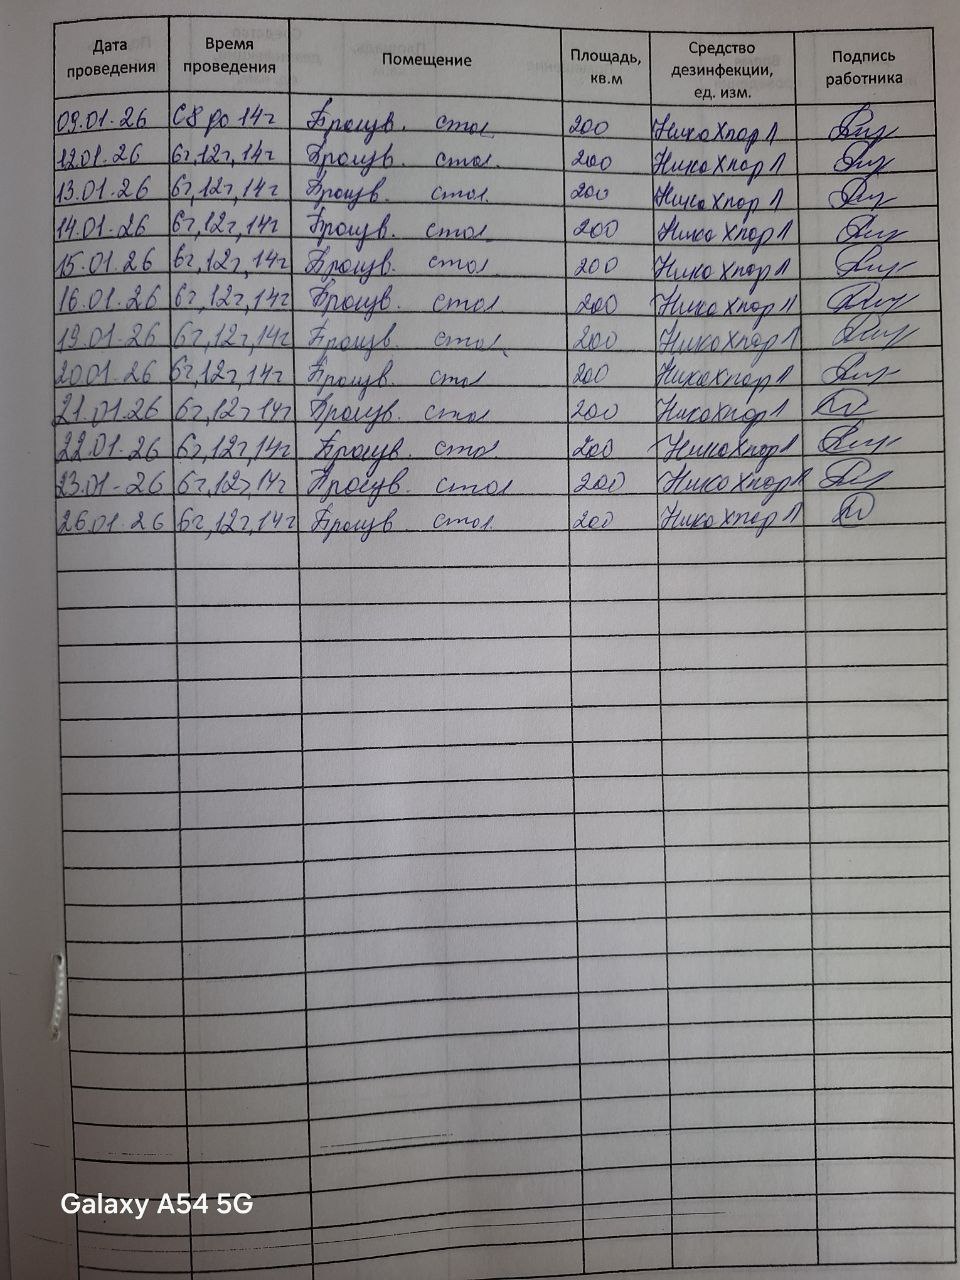 Дата проведения Время проведения Помещение Площадь, кв.м Средство дезинфекции, ед. изм. Подпись работника
09.01.26 С 8 до 14ч стол 200 Ника Хлор Л
12.01.26 6ч,12ч,14ч стол 200 Ника Хлор Л
13.01.26 6ч,12ч,14ч стол. 200 Ника Хлор Л
14.01.26 6ч,12ч,14ч стол 200 Ника Хлор Л
15.01.26 6ч,12ч,14ч стол 200 Ника Хлор Л
16.01.26 6ч,12ч,14ч стол 200 Ника Хлор Л
19.01.26 6ч,12ч,14ч стол 200 Ника Хлор Л
20.01.26 6ч,12ч,14ч стол 200 Ника Хлор Л
21.01.26 6ч,12ч,14ч стол 200 Ника Хлор Л
22.01.26 6ч,12ч,14ч стол 200 Ника Хлор Л
23.01.26 6ч,12ч,14ч стол 200 Ника Хлор Л
26.01.26 6ч,12ч,14ч стол 200 Ника Хлор Л
Galaxy A54 5G